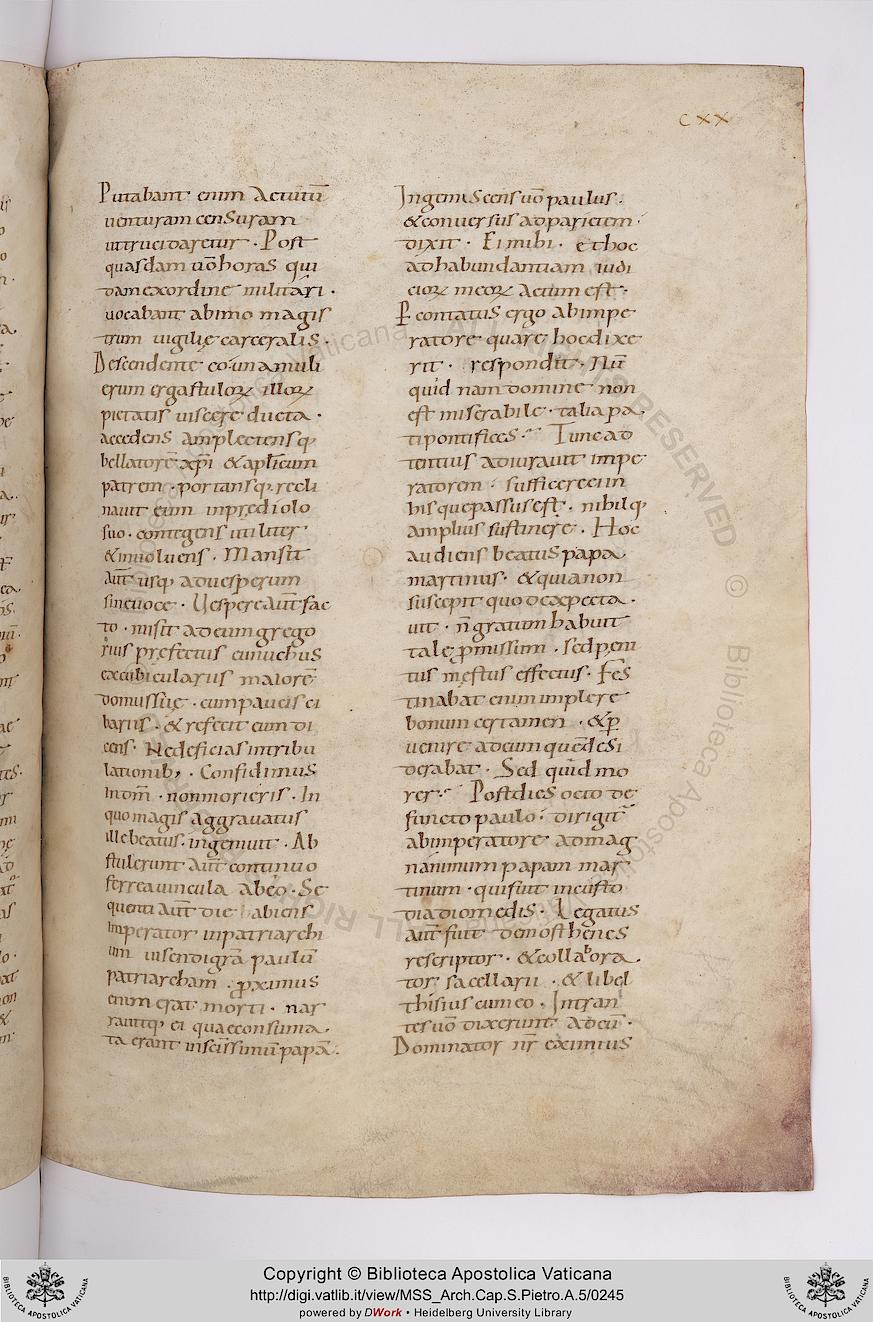 CXX
Putabant enim actutū
uenturam censuram
ut trucidaretur · Post
quasdam uō horas qui
dam ex ordine militari ·
uocabant ab imo magis
trum uigilię carceralis ·
Descendente
erum ergastuloꝝ illoꝝ
pietatis uiscere ducta ·
accedens amplectensq;
bellatorē xp̄i & apl̄icum
patrem · portansq; recli
nauit eum in prediolo
suo · contegens utiliter
& inuoluens · Mansit
aūt usq; ad uesperum
sine uoce · Uespere aūt fac
to · misit ad eum grego
rius pręfectus eunuchus
excubicularius maiorē
domus suę · cum paucis ci
bariis · & refecit eum di
cens · Ne deficias in tribu
lationib; · Confidimus
in dn̄m · non morieris · In
quo magis aggrauatus
ille beatus · ingemuit · Ab
stulerunt aūt continuo
ferrea uincula ab eo · Se
quenti aūt die habiens
imperator in patriarchi
um uisendi grā paulū
patriarcham · ꝓximus
enim erat morti · nar
rauitq; ei quae consuma
ta erant in sc̄issimū papā ·
Ingemiscens uō paulus ·
& conuersus ad parietem ·
dixit · Ei mihi · et hoc
ad habundantiam iudi
cioꝝ meoꝝ actum est ·
Percontatus ergo ab impe
ratore quare hoc dixe
rit · respondit · Nū
quid nam domine non
est miserabile · talia pa
ti pontifices · Tunc ad
tentius adiurauit impe
ratorem · sufficere ei in
his que passus est · nihilq;
amplius sustinere · Hoc
audiens beatus papa
martinus · & quia non
suscepit quod expecta
uit · n̄ gratum habuit
tale ꝓmissum · sed peni
tus męstus effectus · Fes
tinabat enim implere
bonum certamen · & ꝑ
uenire ad eum quē desi
derabat · Sed quid mo
rer · Post dies octo de
functo paulo · dirigit̄
ab imperatore ad mag
nanimum papam mar
tinum · qui fuit in custo
dia diomedis · Legatus
aūt fuit demosthenes
rescriptor · & collabora
tor sacellarii · & libel
thisius cum eo · Intran
tes uō dixerunt ad eū ·
Dominator nr̄ eximius
Copyright © Biblioteca Apostolica Vaticana
http://digi.vatlib.it/view/MSS_Arch.Cap.S.Pietro.A.5/0245
powered by DWork • Heidelberg University Library